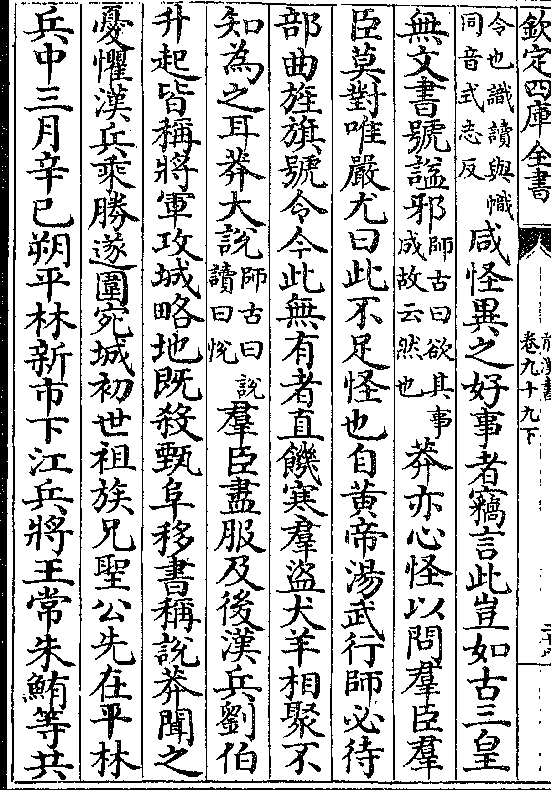 欽定四庫全書
前漢書
卷九十九下
令也識讀與幟
同音式志反
咸怪異之好事者竊言此豈如古三皇
無文書號謚邪
師古曰欲其事
咸故云然也
莽亦心怪以問羣臣羣
臣莫對唯嚴尤曰此不足怪也自黃帝湯武行師必待
部曲旌旗號令今此無有者直饑寒羣盜犬羊相聚不
知為之耳莽大說
師古曰說
讀曰悅
羣臣盡服及後漢兵劉伯
升起皆稱將軍攻城略地既殺甄阜移書稱說莽聞之
憂懼漢兵乘勝遂圍宛城初世祖族兄聖公先在平林
兵中三月辛巳朔平林新市下江兵將王常朱鮪等共